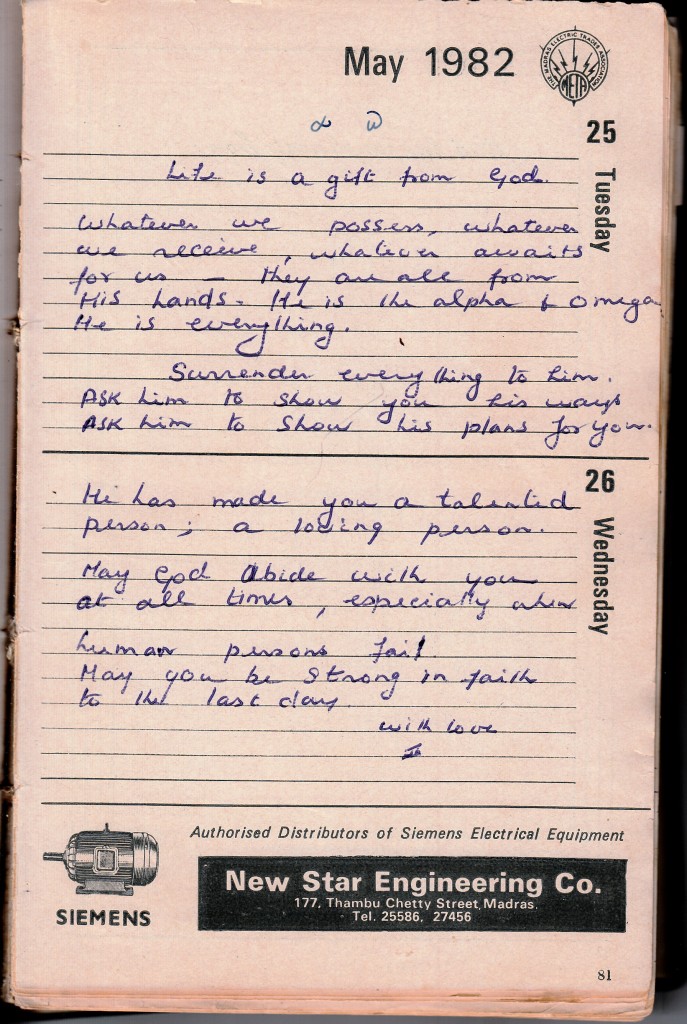 May 1982
THE MADRAS ELECTRIC TRADES ASSOCIATION
META
α ω
25 Tuesday
Life is a gift from God.
Whatever we possess, whatever
we receive, whatever awaits
for us — they are all from
His hands. He is the alpha & Omega
He is everything.
Surrender everything to him.
ASK him to show you his ways
ASK him to show his plans for you.
26 Wednesday
He has made you a talented
person; a loving person.
May God Abide with you
at all times, especially when
human persons fail.
May you be strong in faith
to the last day.
with love
Authorised Distributors of Siemens Electrical Equipment
SIEMENS
New Star Engineering Co.
177, Thambu Chetty Street, Madras.
Tel. 25586, 27456
81